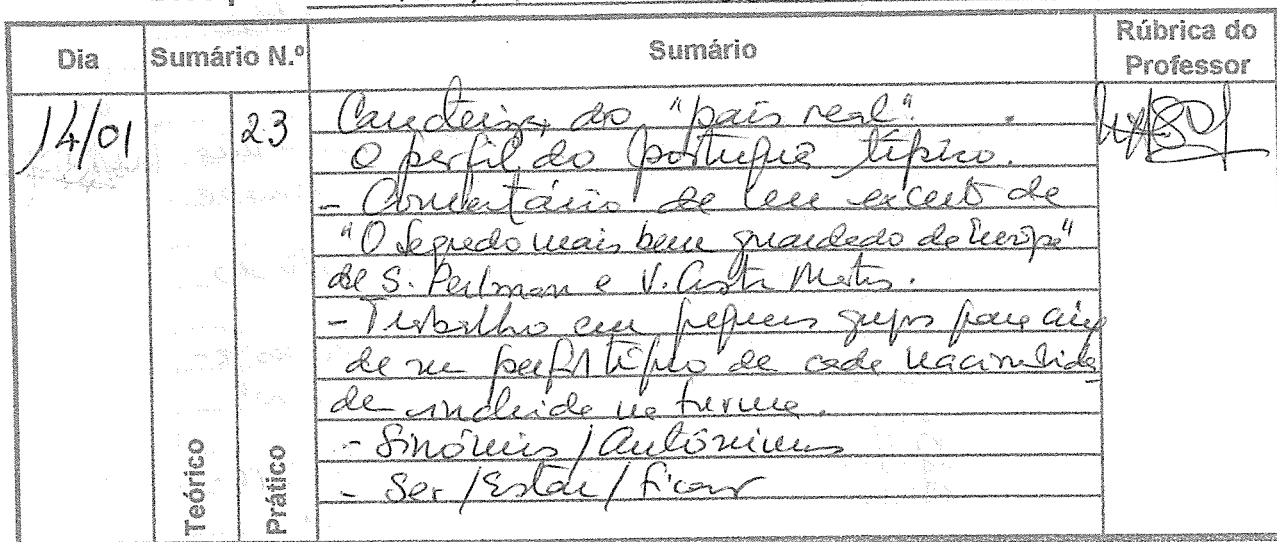 Dia Sumário N.º Sumário Rúbrica do Professor
14/01 23 do "país real".
O perfil do português típico.
- Comentário de um excerto de
"O segredo mais bem guardado da Europa"
de S. Perlman e V. Costa Matos.
- Trabalho em pequenos grupos para
de um perfil típico de cada nacionalida
de incluída na turma.
- Sinónimos / Antónimos
- Ser / Estar / Ficar
Teórico Prático